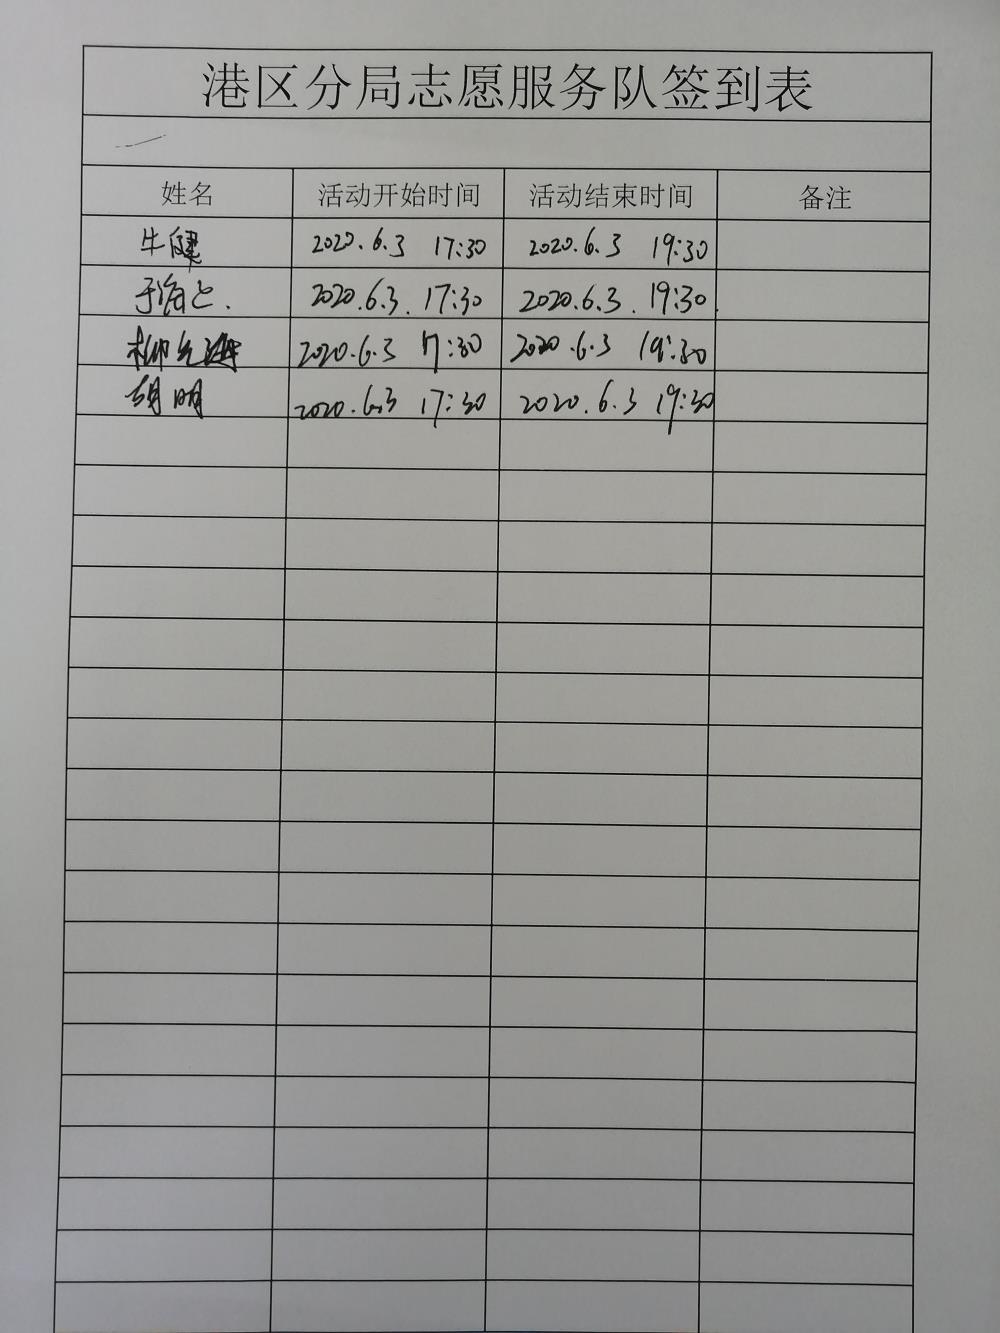 港区分局志愿服务队签到表
姓名 活动开始时间 活动结束时间 备注
牛健 2020.6.3 17:30 2020.6.3 19:30
于海 2020.6.3. 17:30 2020.6.3. 19:30.
柳 2020.6.3 17:30 2020.6.3 19:30
胡明 2020.6.3 17:30 2020.6.3 19:30